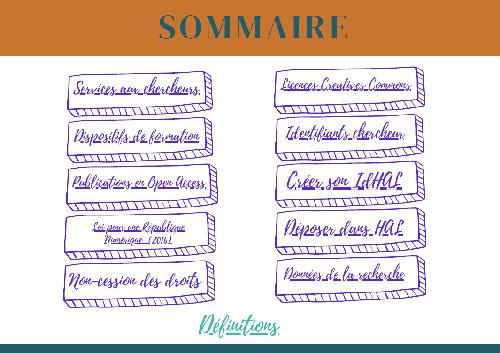 SOMMAIRE
Services aux chercheurs
Dispositifs de formation
Publications en Open Access
Loi pour une République
Numérique (2016)
Non-cession des droits
Licences Creatives Commons
Identifiants chercheur
Créer son IdHAL
Déposer dans HAL
Données de la recherche
Définitions